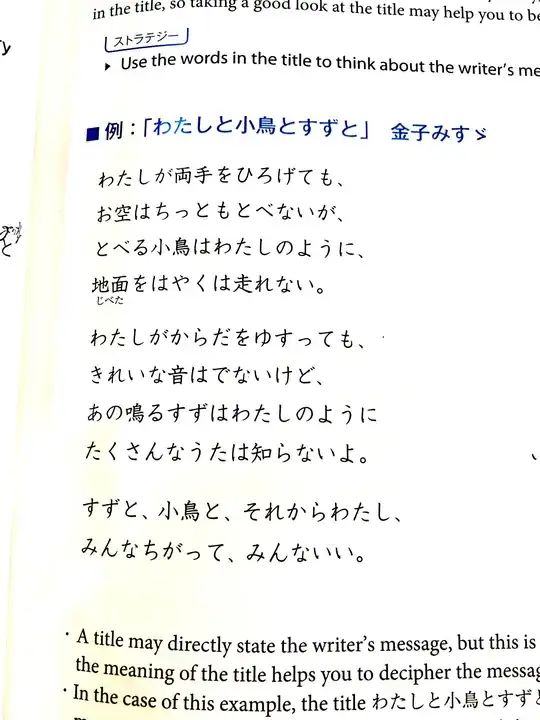 in the title, so taking a good look at the title may help you to be
ストラテジー
▸ Use the words in the title to think about the writer's me
■例：「わたしと小鳥とすずと」 金子みすゞ
わたしが両手をひろげても、
お空はちっともとべないが、
とべる小鳥はわたしのように、
地面をはやくは走れない。
じべた
わたしがからだをゆすっても、
きれいな音はでないけど、
あの鳴るすずはわたしのように
たくさんなうたは知らないよ。
すずと、小鳥と、それからわたし、
みんなちがって、みんないい。
· A title may directly state the writer's message, but this is
the meaning of the title helps you to decipher the messag
· In the case of this example, the title わたしと小鳥とすずと